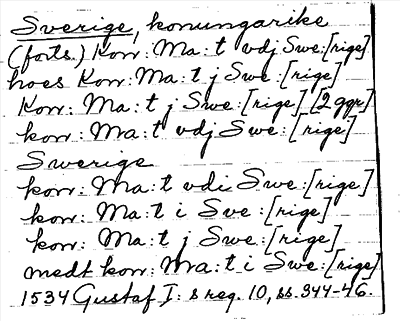 Sverige, konungarike
(forts.) Kon: Ma:t vdj Swe:[rige]
hoes Kon: Ma:t j Swe:[rige]
Kon: Ma:t j Swe:[rige] [2 ggr]
kon: Ma:t vdj Swe:[rige]
Swerige
kon: Ma:t vdi Swe:[rige]
kon: Ma:t i Sve:[rige]
kon: Ma:t j Swe:[rige]
medt kon: Ma:t i Swe:[rige]
1534 Gustaf I:s reg. 10, ss. 344-46.